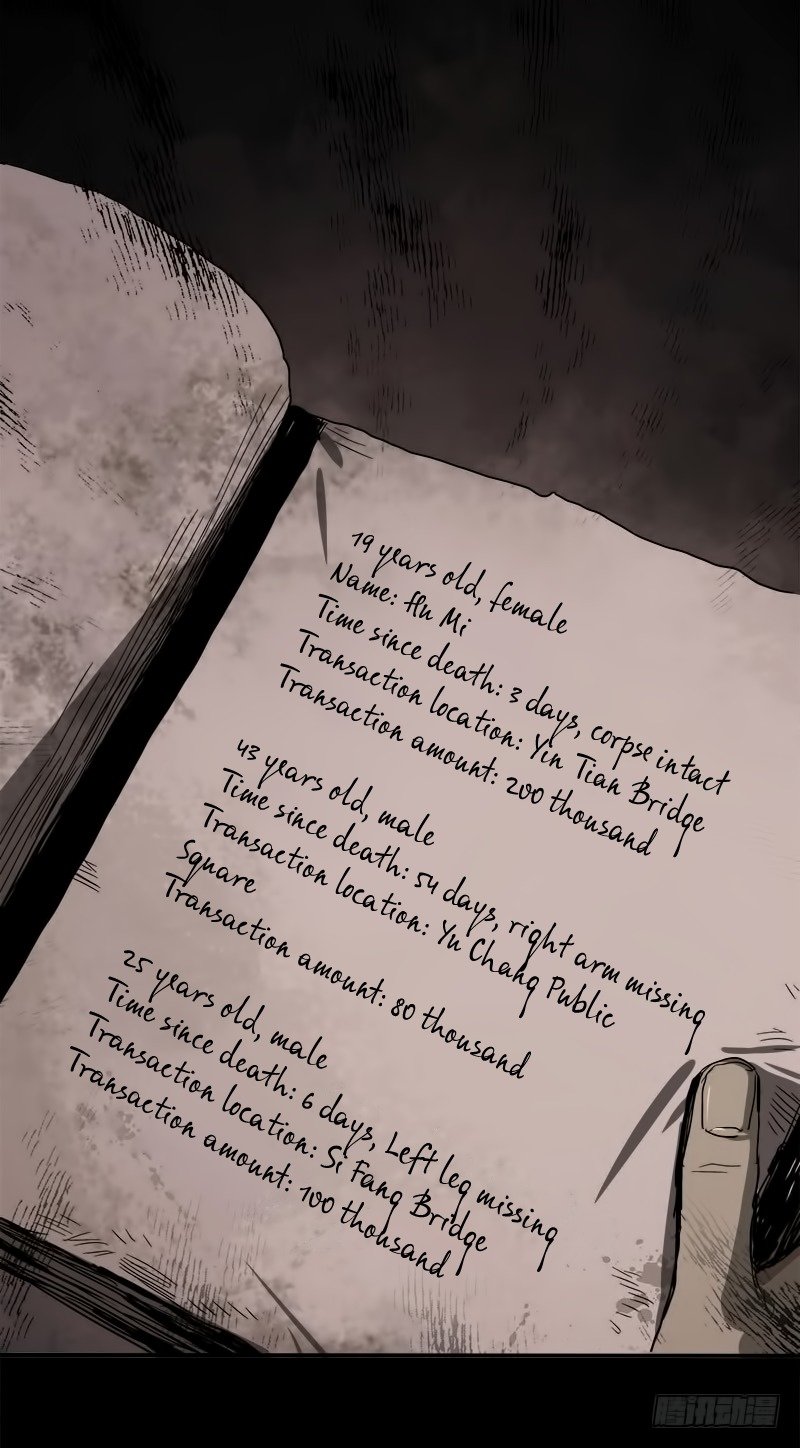 19 years old, female
Name: Hu Mi
Time since death: 3 days, corpse intact
Transaction location: Yin Tian Bridge
Transaction amount: 200 thousand
43 years old, male
Time since death: 54 days, right arm missing
Transaction location: Yu Chang Public
Square
Transaction amount: 80 thousand
25 years old, male
Time since death: 6 days, Left leg missing
Transaction location: Si Fang Bridge
Transaction amount: 100 thousand
腾讯动漫